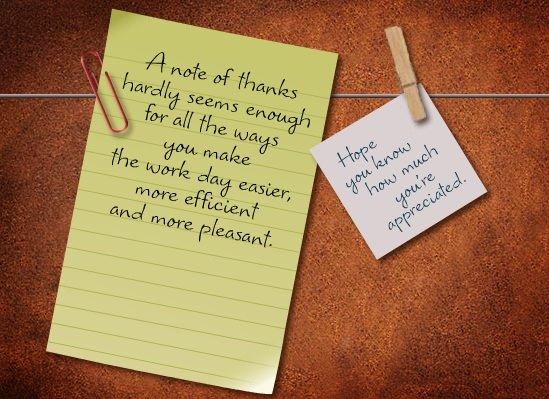 A note of thanks
hardly seems enough
for all the ways
you make
the work day easier,
more efficient
and more pleasant.
Hope
you know
how much
you're
appreciated.